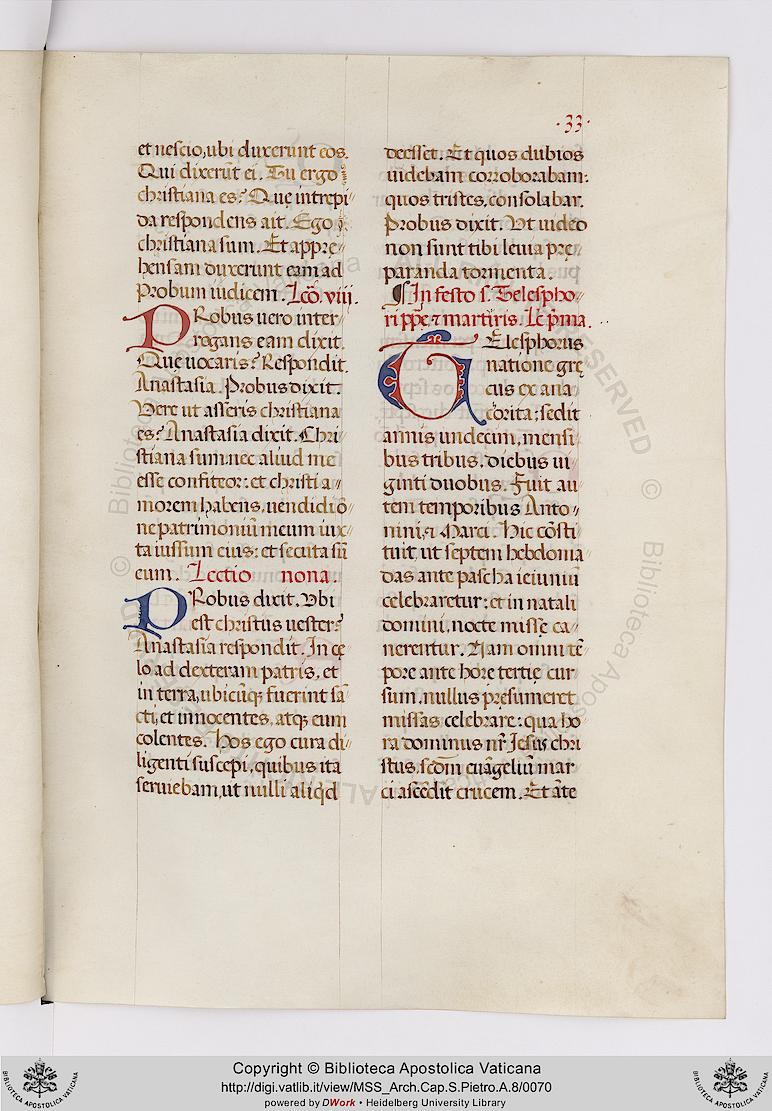 ·33·
et nescio, ubi duxerunt eos.
Qui dixerūt ei. Tu ergo
christiana es? Quę intrepi
da respondens ait. Ego
christiana sum. Et appre
hensam duxerunt eam ad
Probum iudicem. Lcō. viii.
PRobus uero inter
rogans eam dixit.
Que uocaris? Respondit.
Anastasia. Probus dixit.
Vere ut asseris christiana
es? Anastasia dixit. Chri
stiana sum. nec aliud me
esse confiteor: et christi a
morem habens, uendidi ō
ne patrimoniū meum iux
ta iussum eius: et secuta sū
eum. Lectio nona.
PRobus dixit. Vbi
est christus uester?
Anastasia respondit. In cę
lo ad dexteram patris, et
in terra, ubicūq; fuerint sā
cti, et innocentes, atq; eum
colentes. Hos ego cura di
ligenti suscepi, quibus ita
seruiebam, ut nulli aliqd
deesset. Et quos dubios
uidebam corroborabam:
quos tristes, consolabar.
Probus dixit. Vt uideo
non sunt tibi leuia prę
paranda tormenta.
In festo s. Telespho
ri ppē. ⁊ martiris. Lc pma.
TElesphorus
natione grę
cus ex ana
corita: sedit
annis undecim, mensi
bus tribus. diebus ui
ginti duobus. Fuit au
tem temporibus Anto
nini, ⁊ Marci. Hic cōsti
tuit, ut septem hebdoma
das ante pascha ieiuniū
celebraretur: et in natali
domini, nocte missę ca
nerentur. Nam omni tē
pore ante horę tertię cur
sum, nullus pręsumeret
missas celebrare: qua ho
ra dominus nr̄ Jesus chri
stus, scdm euāgeliū mar
ci ascēdit crucem. Et āte
© Biblioteca Apostolica Vaticana
ALL RIGHTS RESERVED
Copyright © Biblioteca Apostolica Vaticana
http://digi.vatlib.it/view/MSS_Arch.Cap.S.Pietro.A.8/0070
powered by DWork • Heidelberg University Library
BIBLIOTECA APOSTOLICA VATICANA
BIBLIOTECA APOSTOLICA VATICANA